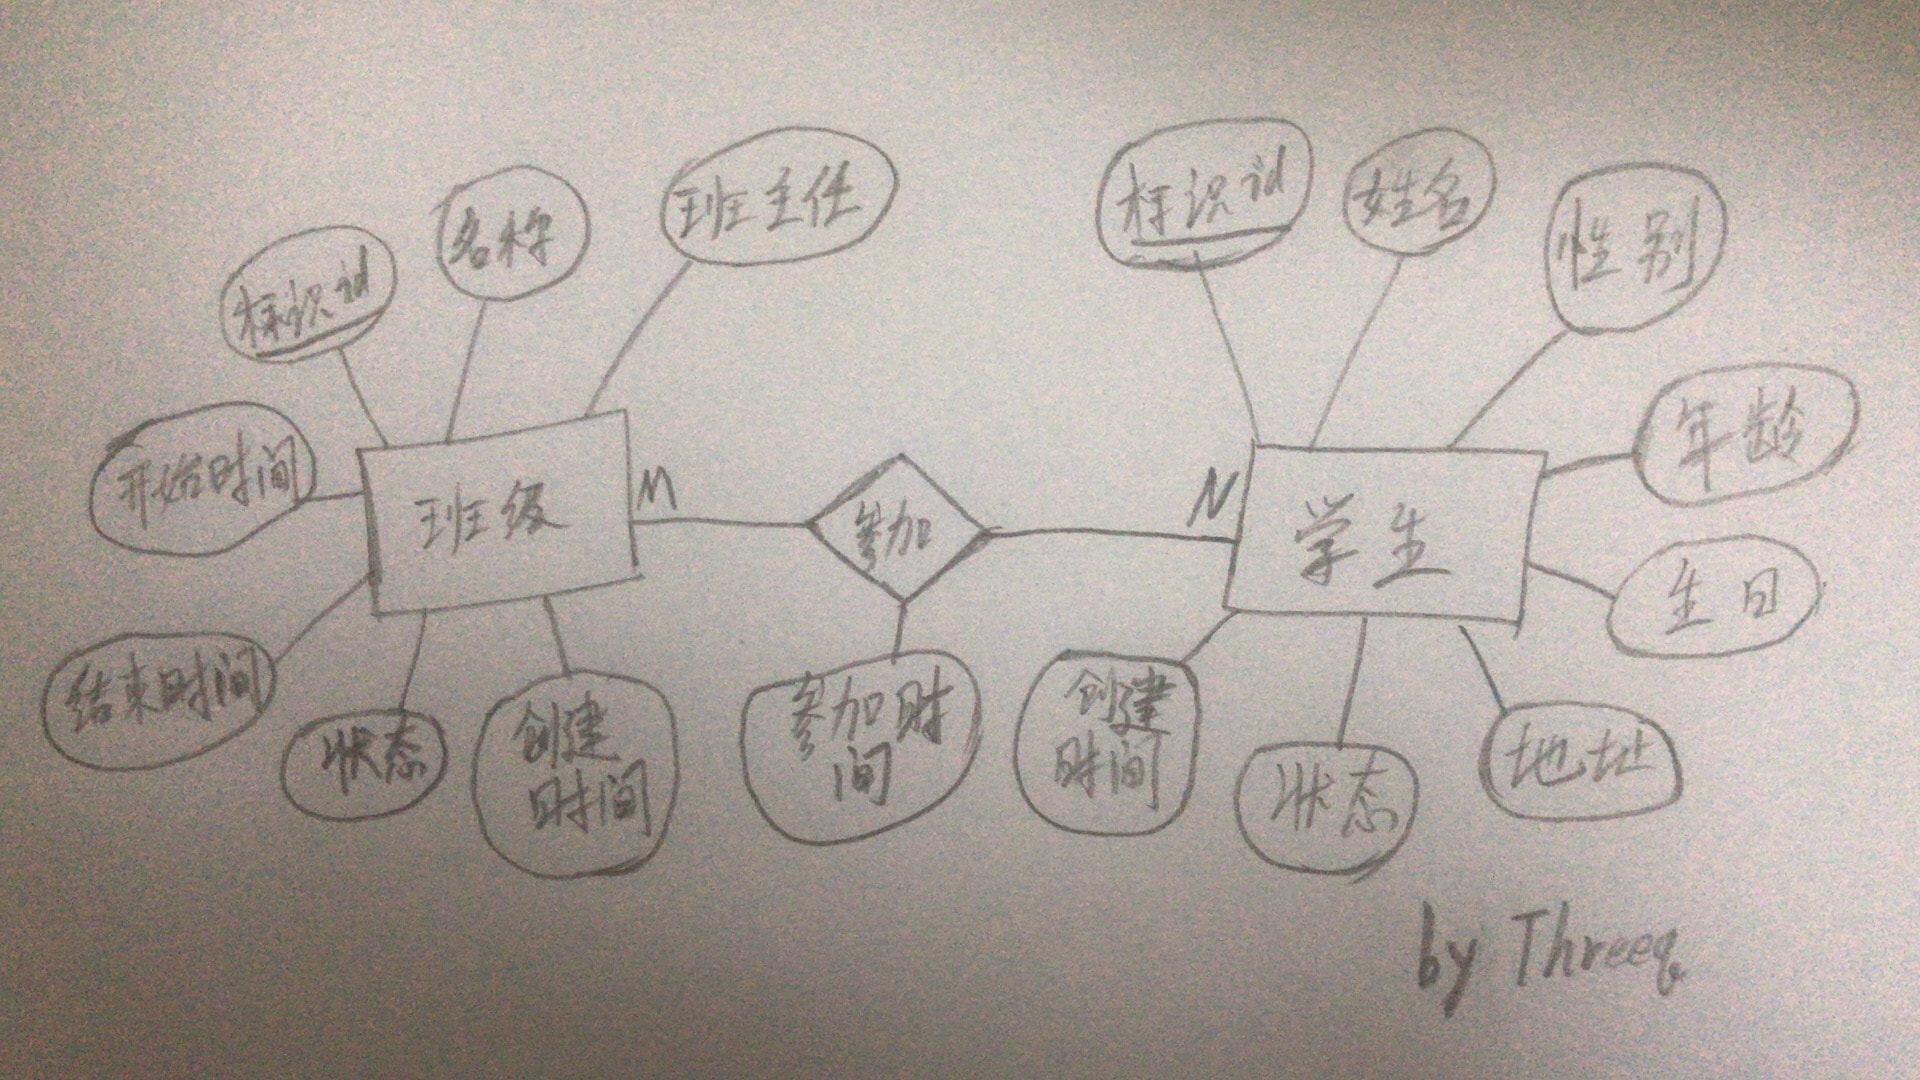 标识id
名称
班主任
开始时间
班级
结束时间
状态
创建
时间
M
参加
N
参加时
间
标识id
姓名
性别
年龄
学生
生日
地址
状态
创建
时间
by Threeq